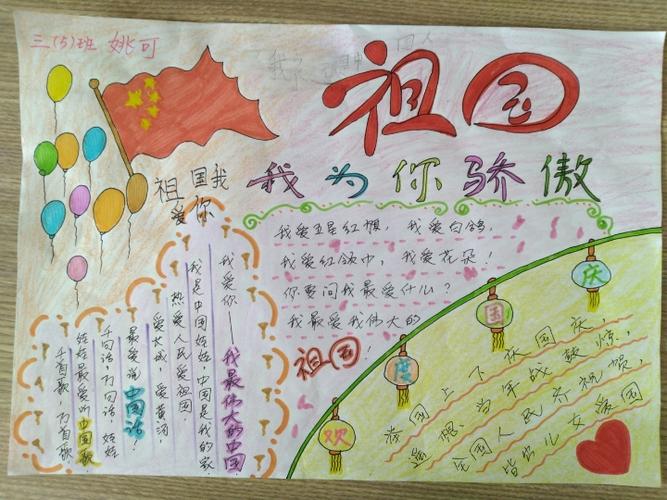 三(5)班 姚可
祖国
我为你骄傲
祖国我
爱你
我爱你——我最伟大的中国
我是中国娃娃,中国是我的家
热爱人民爱祖国,
爱长城,爱黄河,
最爱说中国话!
千句话,万句话,娃娃
娃娃最爱听中国歌
千首歌,万首歌,
我爱五星红旗,我爱白鸽,
我爱红领巾,我爱花朵!
你要问我最爱什么?
我最爱我伟大的
祖国!
欢度国庆
举国上下庆国庆,
遥想当年战鼓惊,
全国人民齐祝贺,
皆出儿女爱国